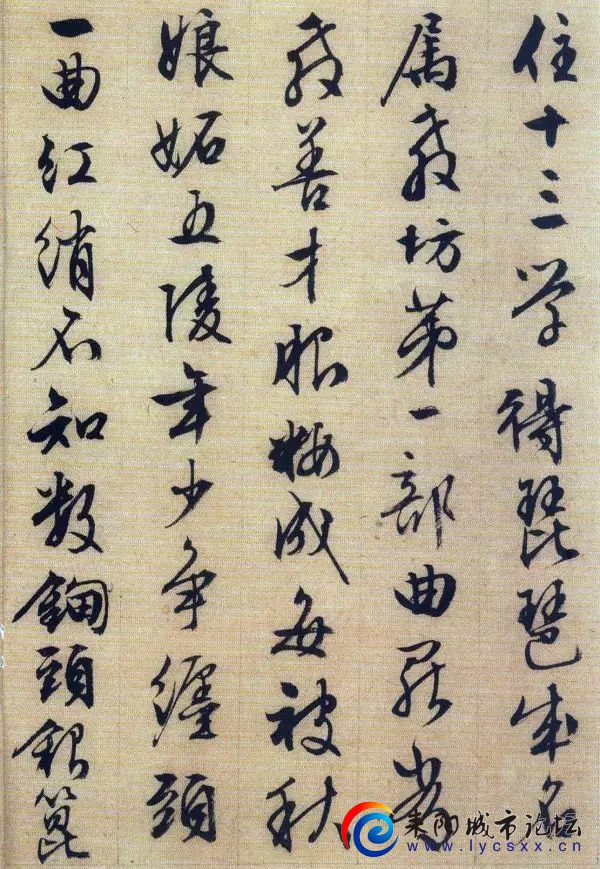 住十三学得琵琶成名
属教坊第一部曲罷常
教善才服粧成每被秋
娘妬五陵年少争纏頭
一曲紅綃不知数鈿頭銀篦
耒阳城市论坛
www.lycsxx.cn